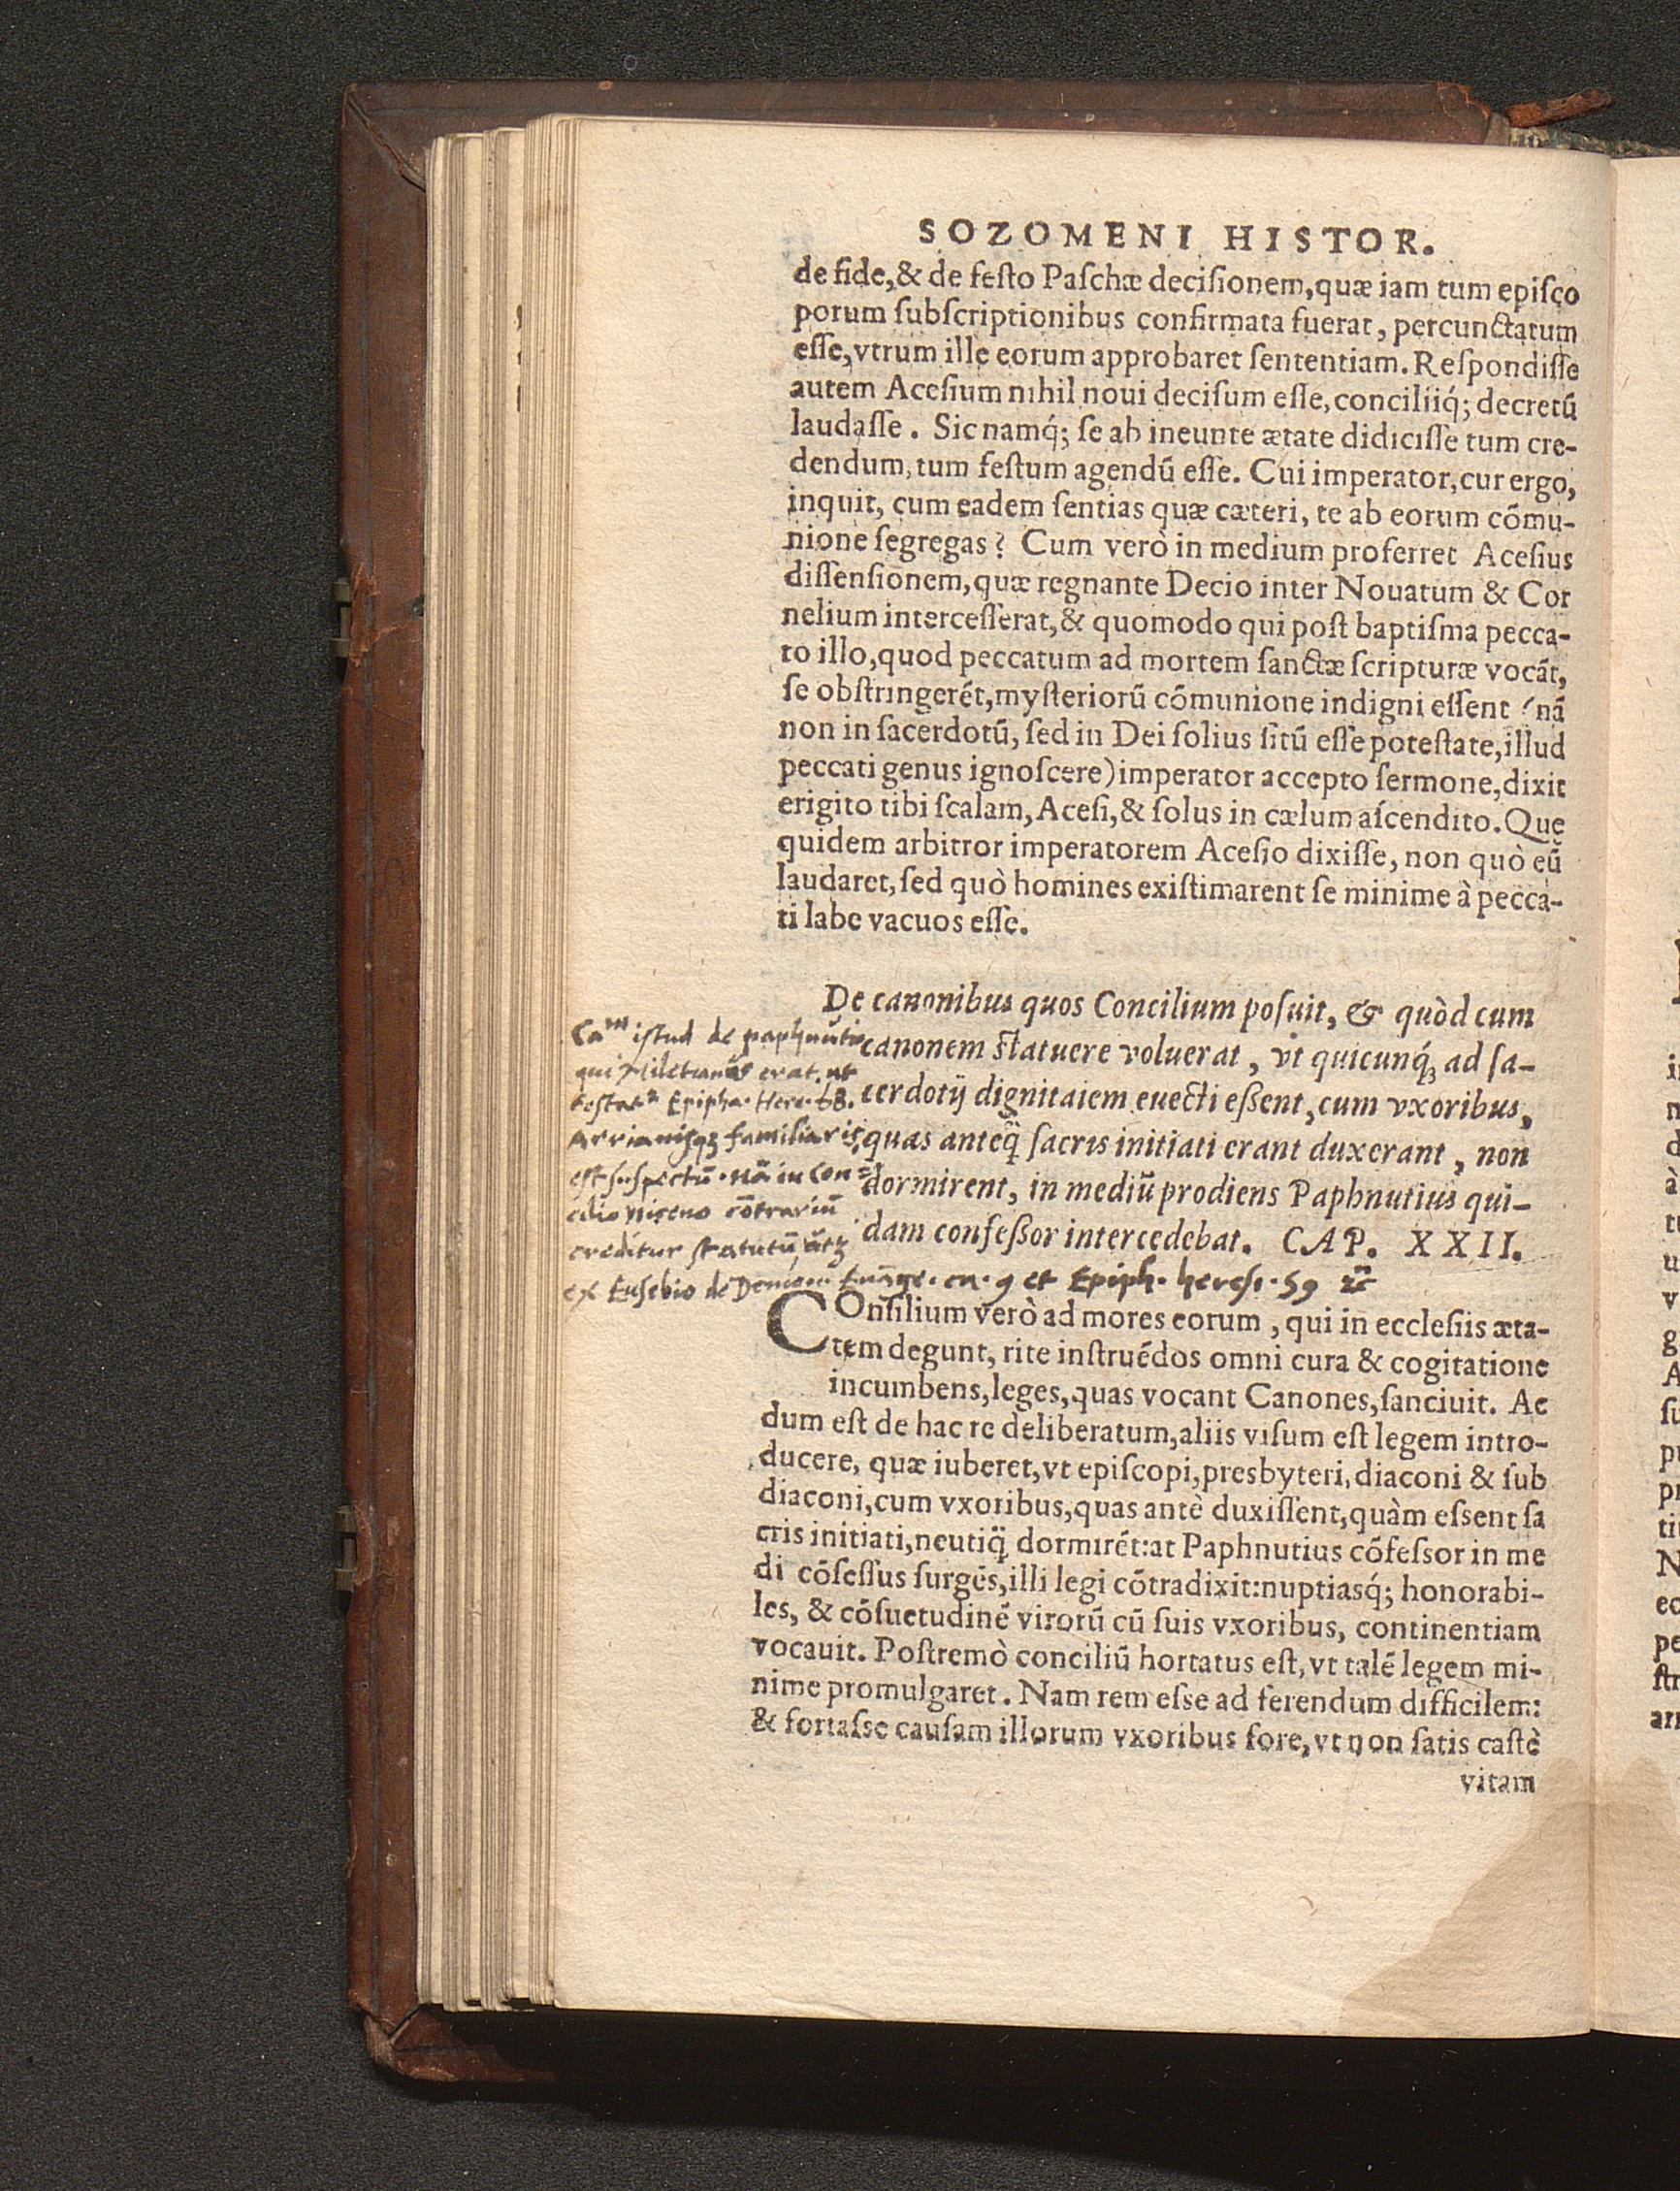 SOZOMENI HISTOR.
de fide,& de feſto Paſchæ deciſionem,quæ iam tum epiſco
porum ſubſcriptionibus confirmata fuerat, percunctatum
eſſe,vtrum ille eorum approbaret ſententiam. Reſpondiſſe
autem Aceſium nihil noui deciſum eſſe,conciliiq́; decretū
laudaſſe. Sic namq́; ſe ab ineunte ætate didiciſſe tum cre-
dendum, tum feſtum agendū eſſe. Cui imperator,cur ergo,
inquit, cum eadem ſentias quæ cæteri, te ab eorum cōmu-
nione ſegregas? Cum verò in medium proferret Aceſius
diſſenſionem,quæ regnante Decio inter Nouatum & Cor
nelium interceſſerat,& quomodo qui poſt baptiſma pecca-
to illo,quod peccatum ad mortem ſanctæ ſcripturæ vocāt,
ſe obſtringerēt,myſteriorū cōmunione indigni eſſent (nā
non in ſacerdotū, ſed in Dei ſolius ſitū eſſe poteſtate,illud
peccati genus ignoſcere) imperator accepto ſermone,dixit
erigito tibi ſcalam, Aceſi,& ſolus in cælum aſcendito. Que
quidem arbitror imperatorem Aceſio dixiſſe, non quò eū
laudaret,ſed quò homines exiſtimarent ſe minime à pecca-
ti labe vacuos eſſe.
De canonibus quos Concilium poſuit, & quòd cum
canonem ſtatuere voluerat, vt quicunq́; ad ſa-
cerdotij dignitatem euecti eſſent, cum vxoribus,
quas anteq̃ ſacris initiati erant duxerant, non
dormirent, in mediū prodiens Paphnutius qui-
dam confeſſor intercedebat. CAP. XXII.
Ca^m istud de paphnutio
qui Miletianus erat, ut
testat^r Epipha. Here. 68.
Arrianisq; familiaris,
est suspectū. nā in con=
cilio niceno cōtrariū
creditur statutū
ex Eusebio de Euāge. et Epiph. heresi. 59
COnſilium verò ad mores eorum, qui in eccleſiis æta-
tem degunt, rite inſtruēdos omni cura & cogitatione
incumbens,leges,quas vocant Canones,ſanciuit. Ac
dum eſt de hac re deliberatum,aliis viſum eſt legem intro-
ducere, quæ iuberet,vt epiſcopi,presbyteri,diaconi & ſub
diaconi,cum vxoribus,quas antè duxiſſent,quàm eſſent ſa
cris initiati,neutiq̃ dormirēt:at Paphnutius cōfeſſor in me
di cōſeſſus ſurgēs,illi legi cōtradixit:nuptiasq́; honorabi-
les, & cōſuetudinē virorū cū ſuis vxoribus, continentiam
vocauit. Poſtremò conciliū hortatus eſt, vt talē legem mi-
nime promulgaret. Nam rem eſſe ad ferendum difficilem:
& fortaſſe cauſam illorum vxoribus fore, vt non ſatis caſtè
vitam